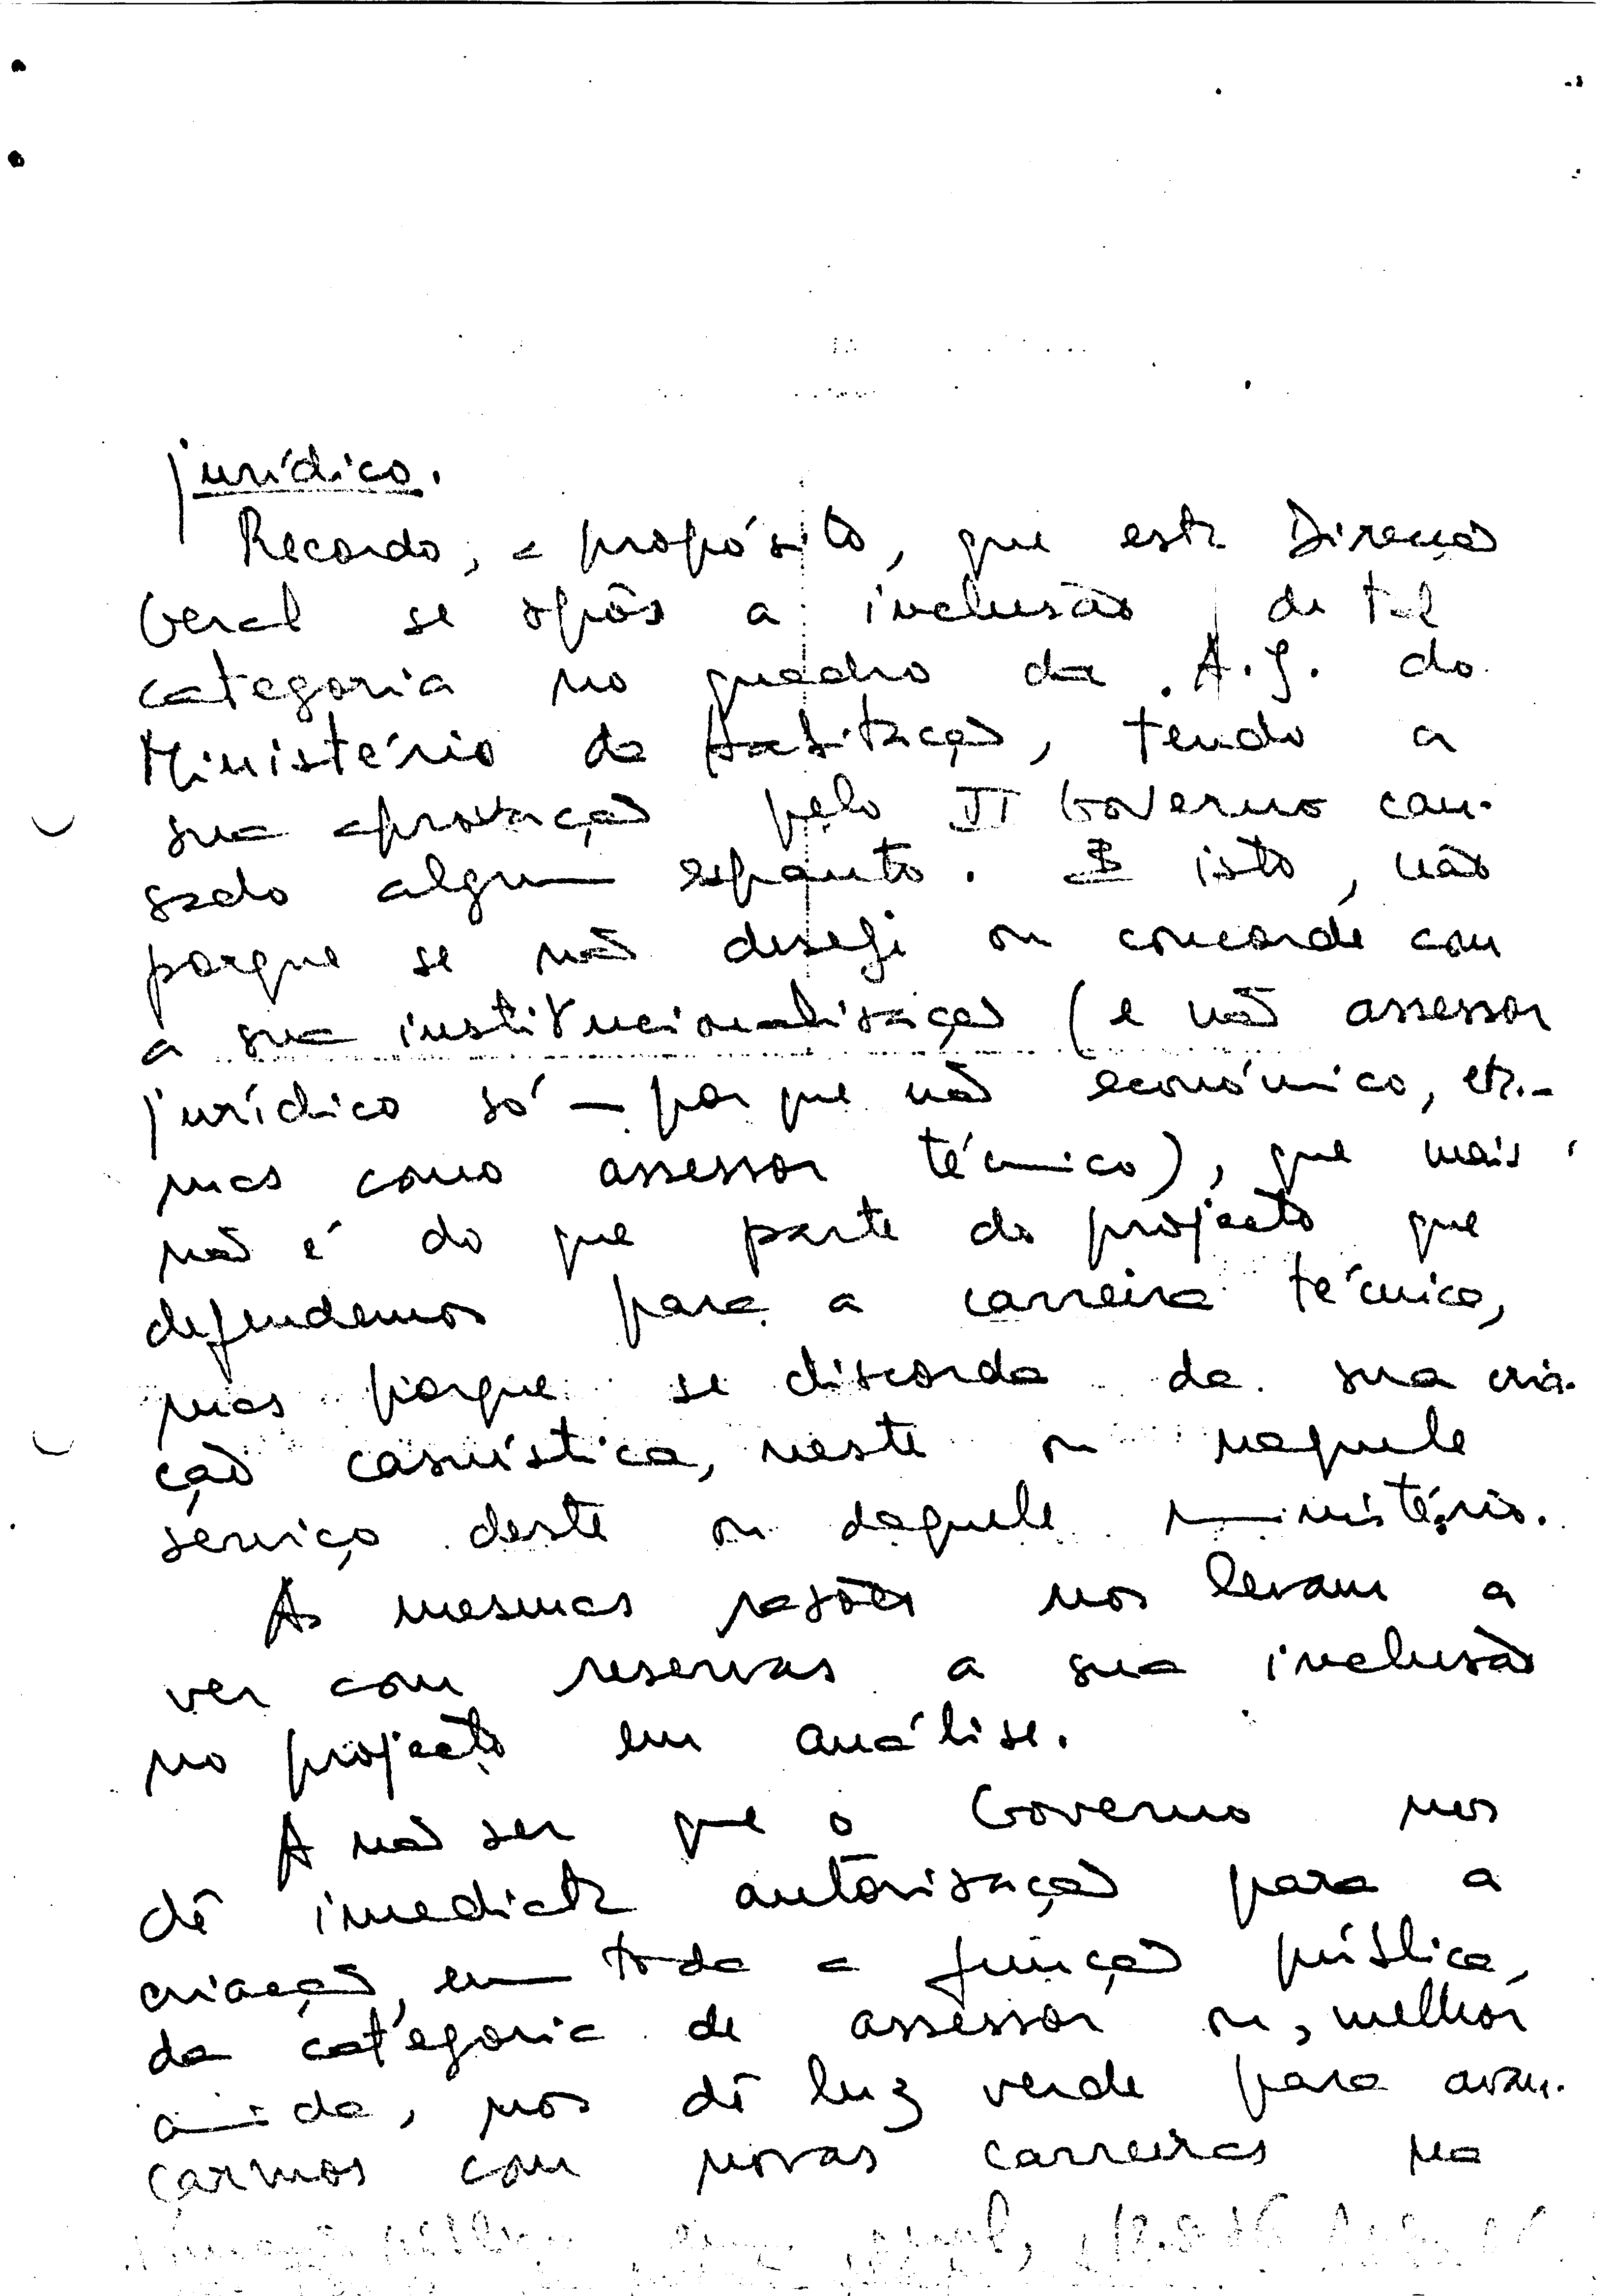 jurídico.
Recordo, a propósito, que esta Direcção
Geral se opôs a inclusão de tal
categoria no quadro da A.J. do
Ministério da Habitação, tendo a
sua aprovação pelo II Governo cau-
sado algum espanto. E isto, não
porque se não deseje ou concorde com
a sua institucionalização (e não assessor
jurídico só — porque não económico, etc. -
mas como assessor técnico), que mais
não é do que parte do projecto que
defendemos para a carreira técnica,
mas porque se discorda da sua cria-
ção casuística, neste ou naquele
serviço deste ou daquele ministério.
As mesmas razões nos levam a
ver com reservas a sua inclusão
no projecto em análise.
A não ser que o Governo nos
dê imediata autorização para a
criação, em toda a função pública,
da categoria de assessor ou, melhor
ainda, nos dê luz verde para avan-
çarmos com novas carreiras na